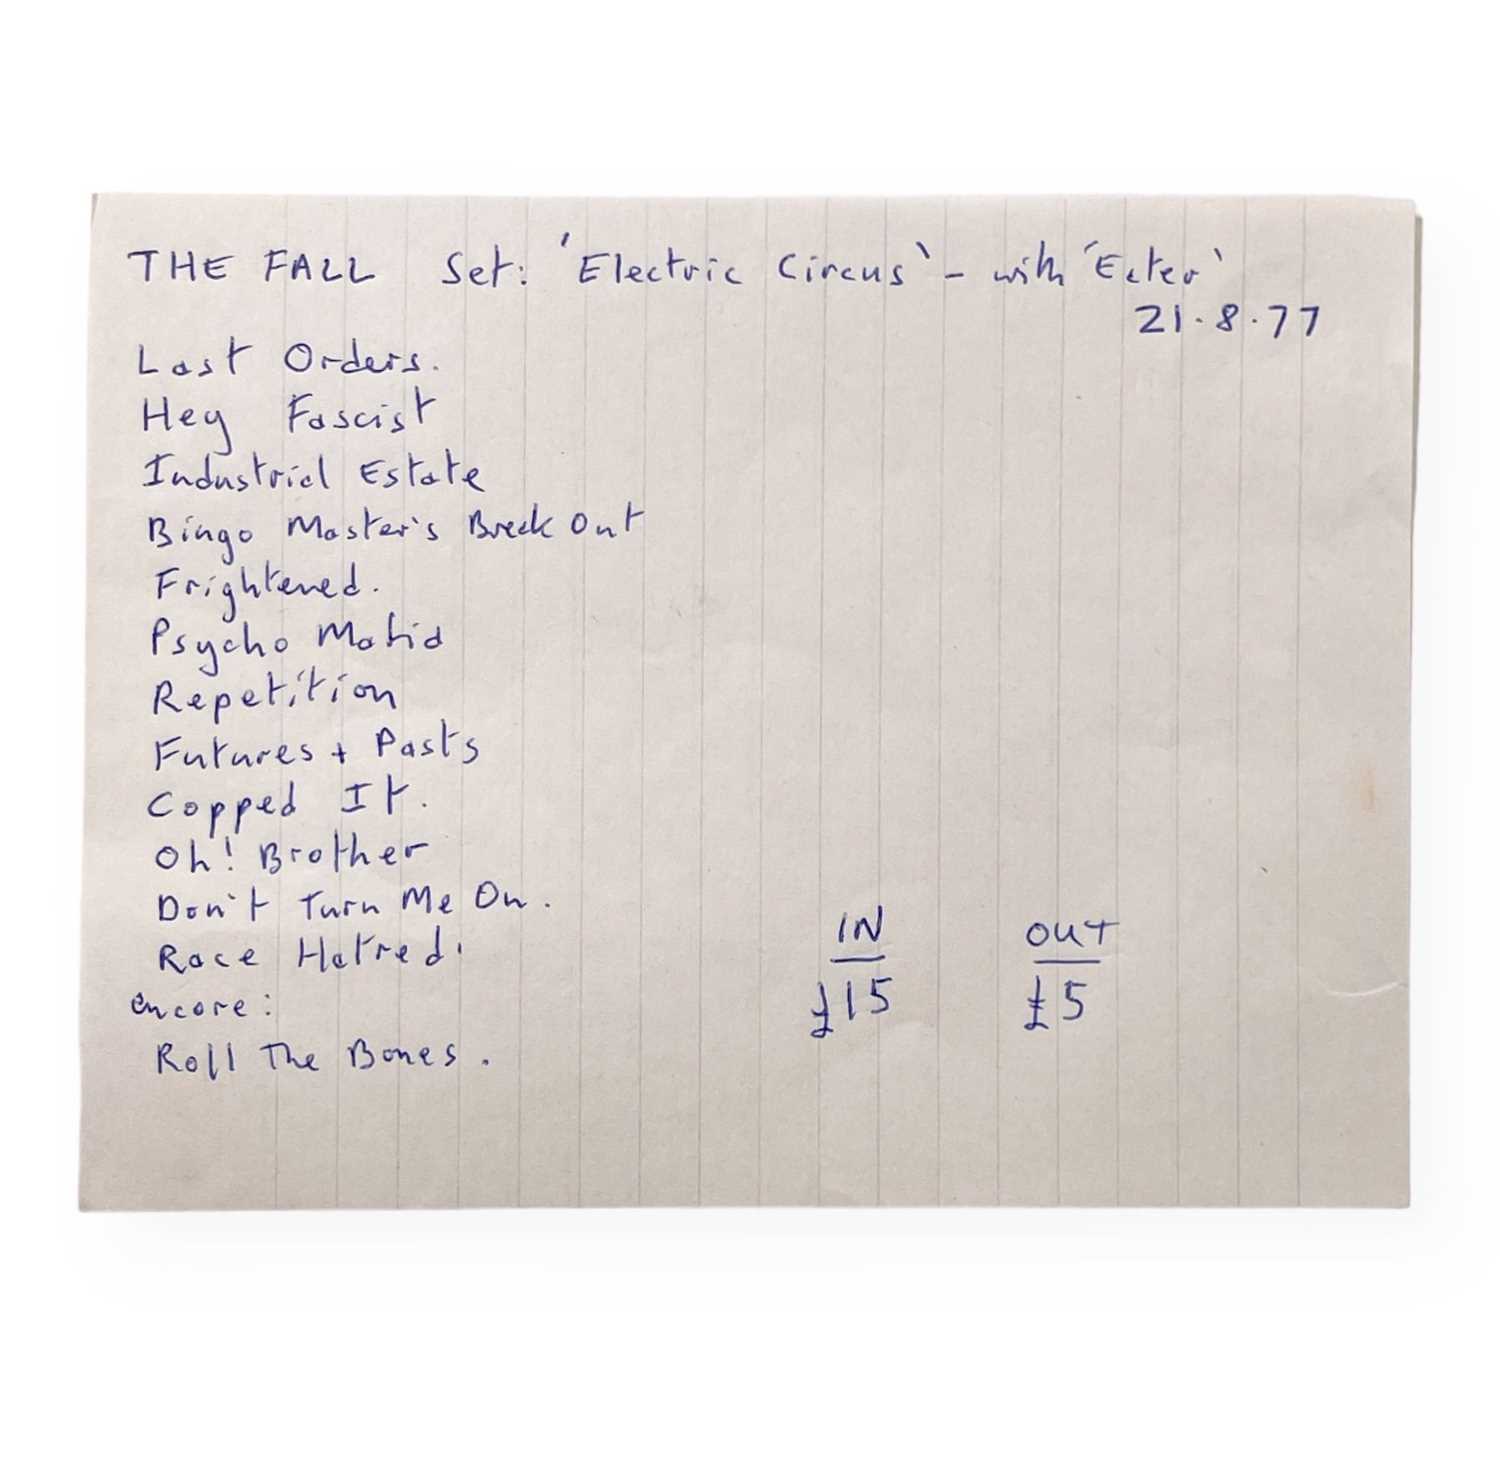 THE FALL Set: 'Electric Circus' - with 'Ecter'
21.8.77
Last Orders.
Hey Fascist
Industrial Estate
Bingo Master's Break Out
Frightened.
Psycho Mafia
Repetition
Futures + Pasts
Copped It.
Oh! Brother
Don't Turn Me On.
Race Hatred.
encore:
Roll The Bones.
IN OUT
£15 £5